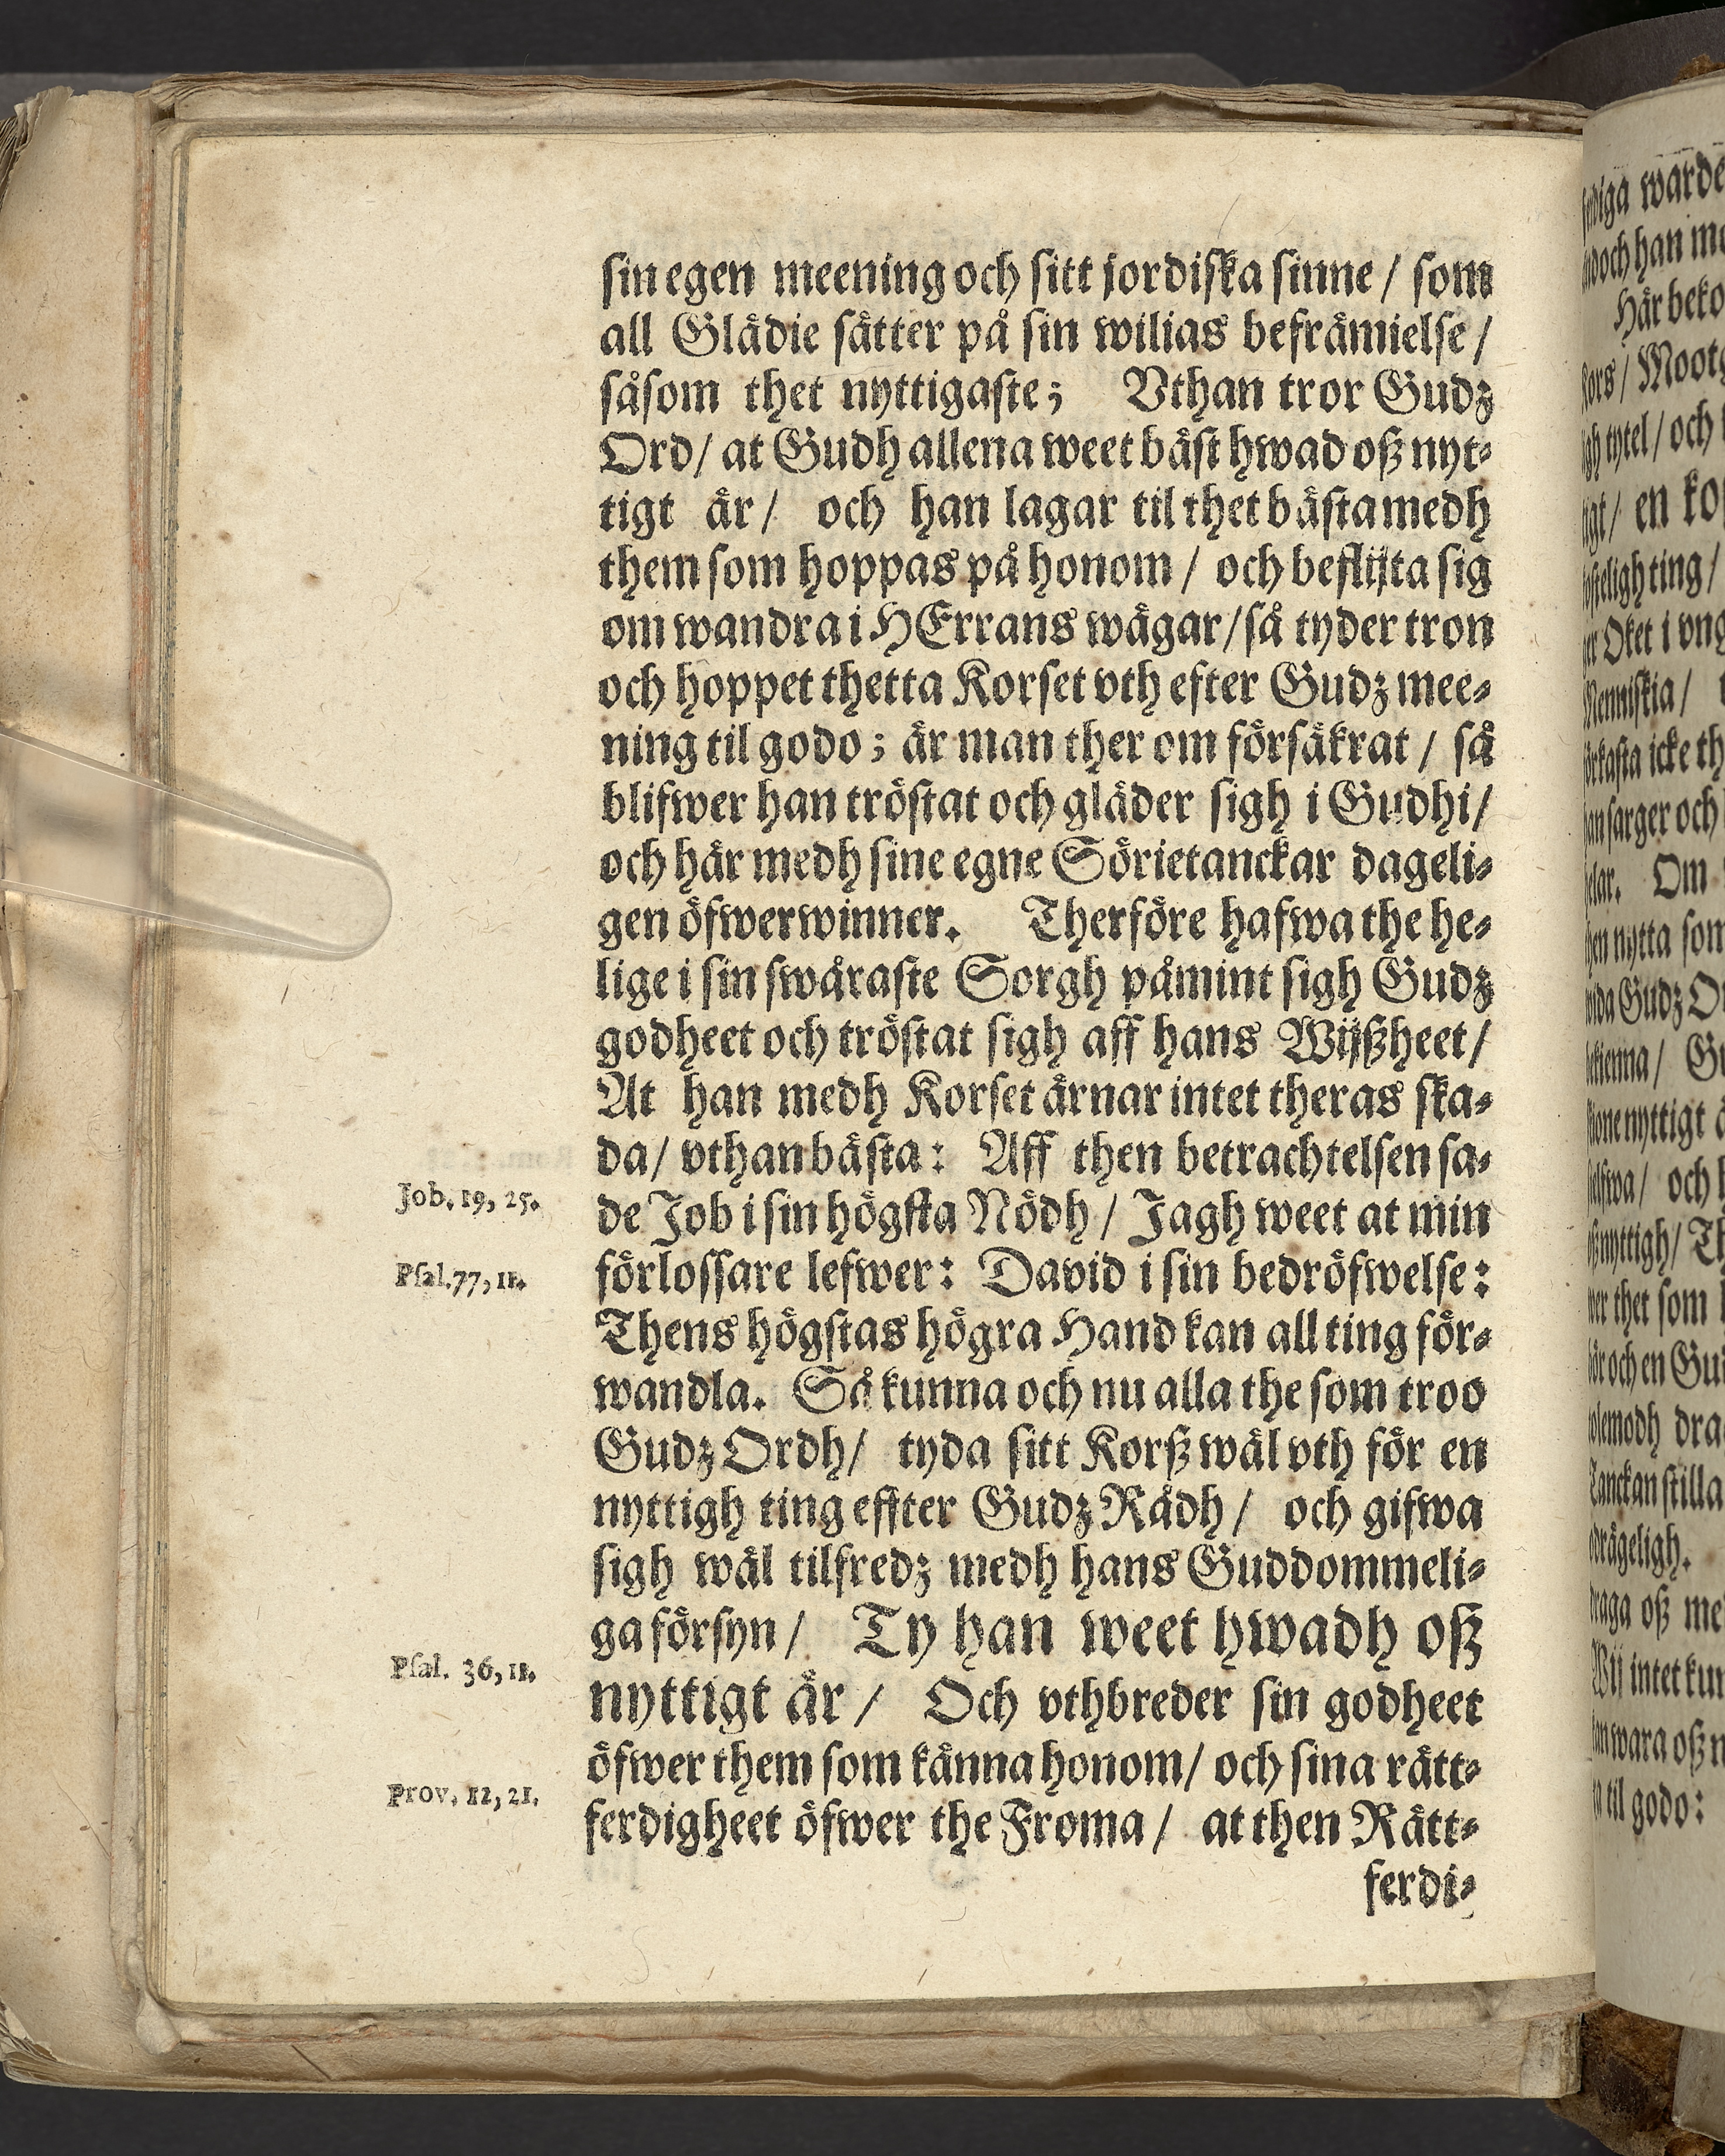 sin egen meening och sitt jordiska sinne / som
all Glädie sätter på sin wilias befrämielse /
såsom thet nyttigaste; Vthan tror Gudz
Ord/ at Gudh allena weet bäst hwad oß nyt-
tigt är / och han lagar til thet bästa medh
them som hoppas på honom / och beflijta sig
om wandra i HErrans wägar/ så tyder tron
och hoppet thetta Korset vth efter Gudz mee-
ning til godo; är man ther om försäkrat / så
blifwer han tröstat och gläder sigh i Gudhi/
och här medh sine egne Sörietanckar dageli-
gen öfwerwinner. Therföre hafwa the he-
lige i sin swåraste Sorgh påmint sigh Gudz
godheet och tröstat sigh aff hans Wijßheet/
At han medh Korset ärnar intet theras ska-
da/ vthan bästa: Aff then betrachtelsen sa-
Job. 19, 25.
de Job i sin högsta Nödh / Jagh weet at min
Psal. 77, 11.
förlossare lefwer: David i sin bedröfwelse:
Thens högstas högra Hand kan all ting för-
wandla. Så kunna och nu alla the som troo
Gudz Ordh/ tyda sitt Korß wäl vth för en
nyttigh ting effter Gudz Rådh / och gifwa
sigh wäl tilfredz medh hans Guddommeli-
ga försyn / Ty han weet hwadh oß
Psal. 36, 11.
nyttigt är / Och vthbreder sin godheet
öfwer them som känna honom/ och sina rätt-
Prov. 12, 21.
ferdigheet öfwer the Froma / at then Rätt-
ferdi-
warde
och han
Här
Moot
tytel / och
en
ting /
Oket i
icke
och
Om
nytta som
Gudz
nyttigt
och
thet som
och en
dra
stilla
oß
intet
wara oß
til godo: